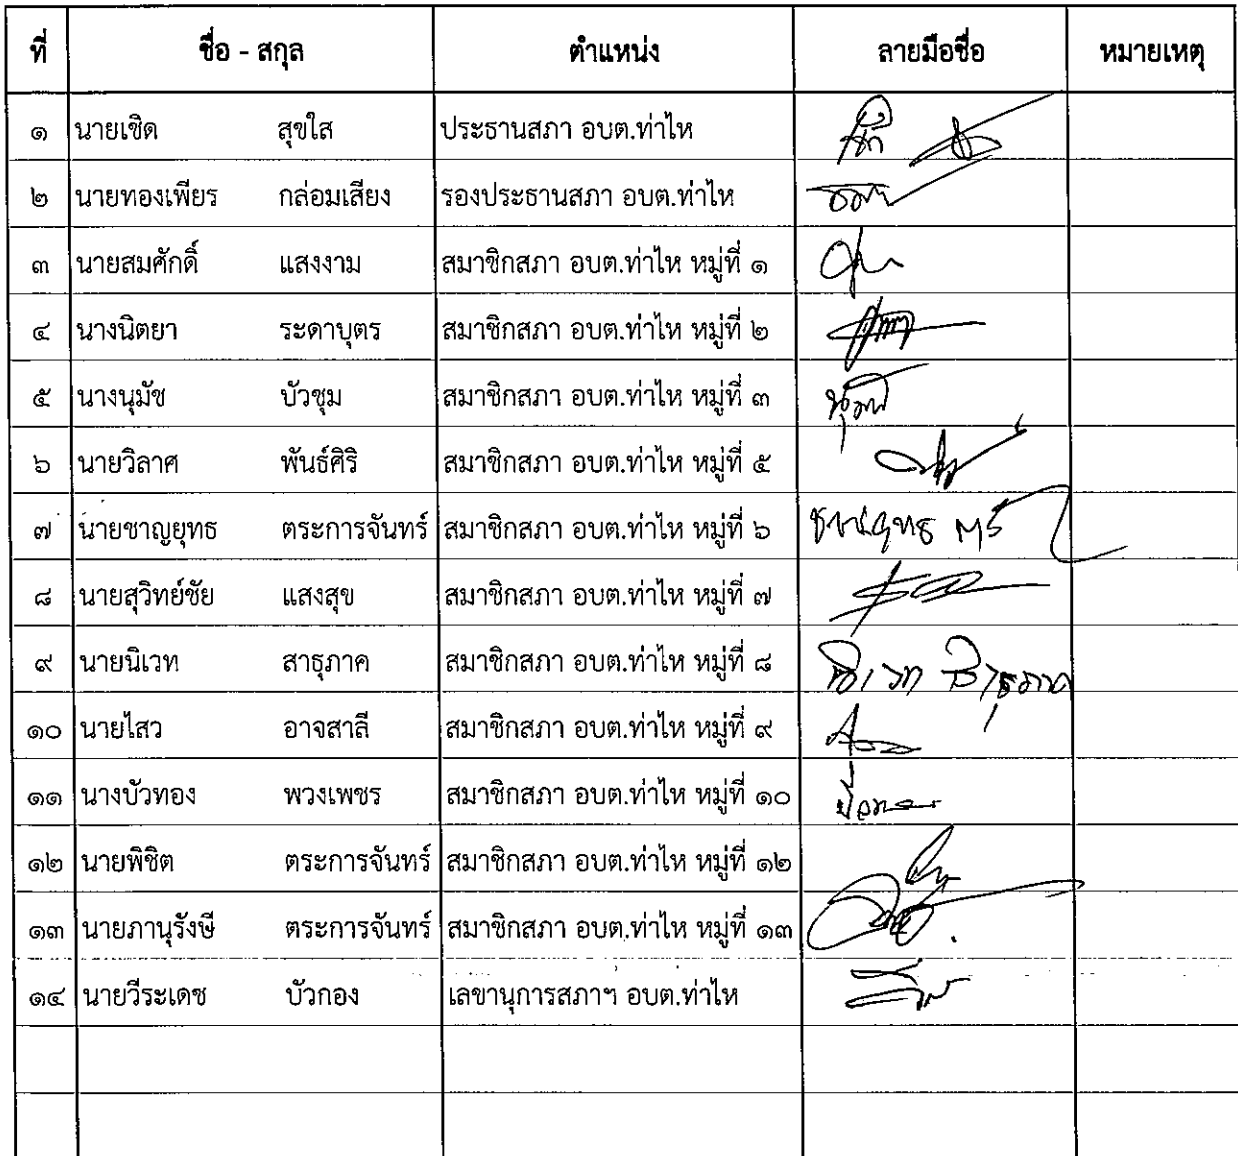 ที่ ชื่อ - สกุล ตำแหน่ง ลายมือชื่อ หมายเหตุ
๑ นายเชิด สุขใส ประธานสภา อบต.ท่าไห
๒ นายทองเพียร กล่อมเสียง รองประธานสภา อบต.ท่าไห
๓ นายสมศักดิ์ แสงงาม สมาชิกสภา อบต.ท่าไห หมู่ที่ ๑
๔ นางนิตยา ระดาบุตร สมาชิกสภา อบต.ท่าไห หมู่ที่ ๒
๕ นางนุมัช บัวชุม สมาชิกสภา อบต.ท่าไห หมู่ที่ ๓
๖ นายวิลาศ พันธ์ศิริ สมาชิกสภา อบต.ท่าไห หมู่ที่ ๕
๗ นายชาญยุทธ ตระการจันทร์ สมาชิกสภา อบต.ท่าไห หมู่ที่ ๖ ชาญยุทธ
๘ นายสุวิทย์ชัย แสงสุข สมาชิกสภา อบต.ท่าไห หมู่ที่ ๗
๙ นายนิเวท สาธุภาค สมาชิกสภา อบต.ท่าไห หมู่ที่ ๘ นิเวท สาธุภาค
๑๐ นายไสว อาจสาลี สมาชิกสภา อบต.ท่าไห หมู่ที่ ๙
๑๑ นางบัวทอง พวงเพชร สมาชิกสภา อบต.ท่าไห หมู่ที่ ๑๐
๑๒ นายพิชิต ตระการจันทร์ สมาชิกสภา อบต.ท่าไห หมู่ที่ ๑๒
๑๓ นายภานุรังษี ตระการจันทร์ สมาชิกสภา อบต.ท่าไห หมู่ที่ ๑๓
๑๔ นายวีระเดช บัวกอง เลขานุการสภาฯ อบต.ท่าไห